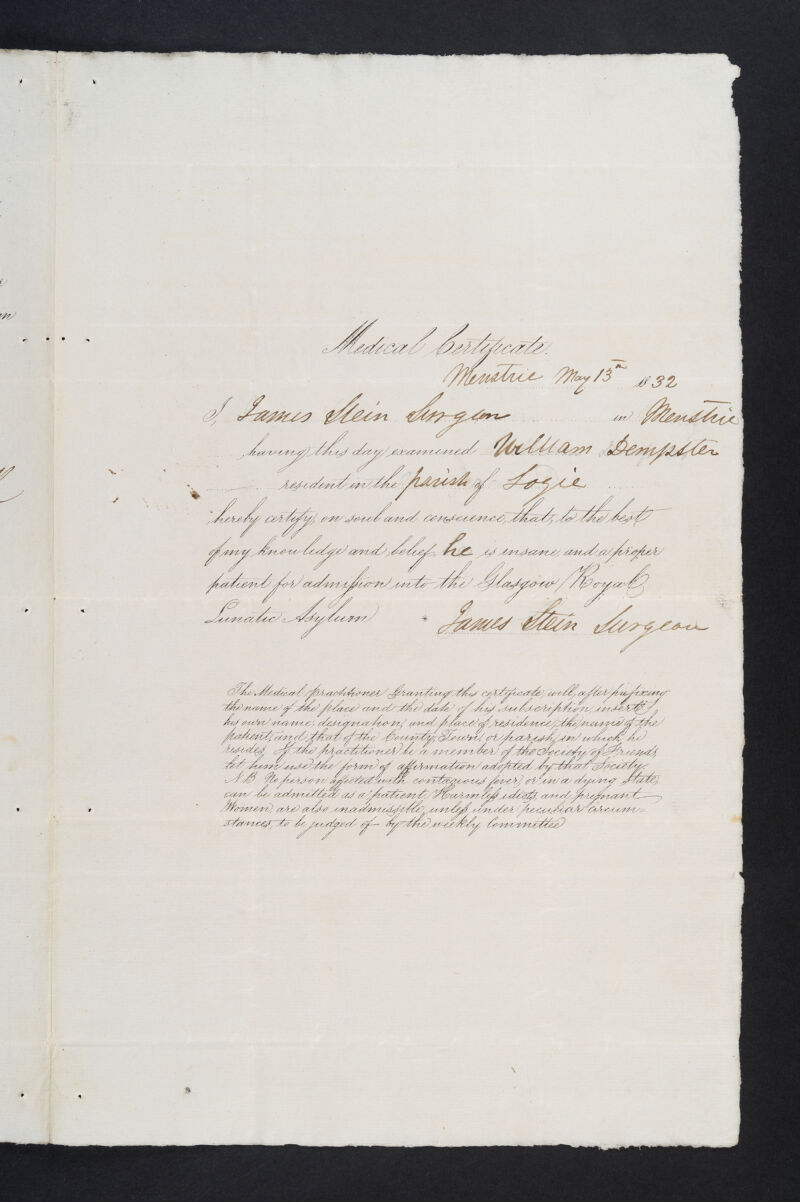 Medical Certificate.
Menstrie May 13th 1832
I, James Stein Surgeon in Menstrie
having this day examined William Dempster
resident in the parish of Logie
hereby certify, on soul and conscience, that, to the best
of my knowledge and belief, he is insane, and a proper
patient for admission into the Glasgow Royal
Lunatic Asylum
James Stein Surgeon
The Medical practitioner Granting this certificate, will, after prefixing
the name of the place and the date of his subscription, insert
his own name, designation, and place of residence, the name of the
patient, and that of the County, Town, or parish, in which he
resides, If the practitioner be a member of the Society of Friends
let him use the form of affirmation adopted by that Society.
N.B. No person affected with contagious fever, or in a dying State,
can be admitted as a patient, Harmless idiots, and pregnant
Women, are also inadmissible, unless under peculiar circum=
stances, to be judged of by the weekly Committee